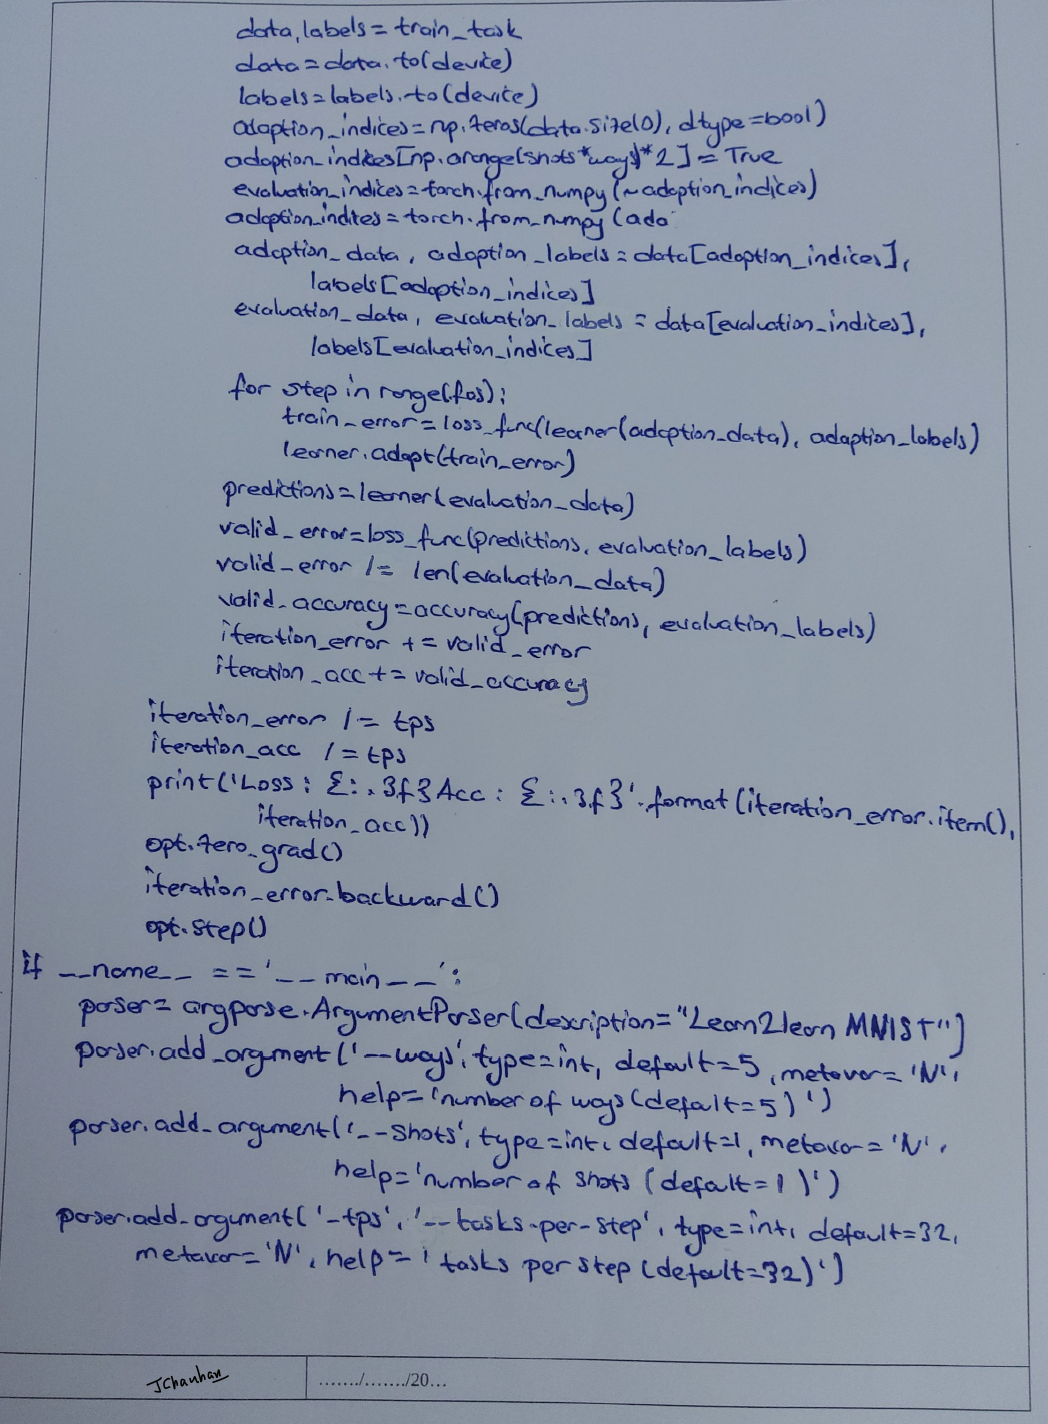 data,labels=train_task
data=data.to(device)
labels=labels.to(device)
adaption_indices=np.zeros(data.size(0), dtype=bool)
adaption_indices[np.arange(shots*ways)*2]=True
evaluation_indices=torch.from_numpy(~adaption_indices)
adaption_indices=torch.from_numpy(ada
adaption_data, adaption_labels=data[adaption_indices],
labels[adaption_indices]
evaluation_data, evaluation_labels=data[evaluation_indices],
labels[evaluation_indices]
for step in range(fas):
train_error=loss_func(learner(adaption_data), adaption_labels)
learner.adapt(train_error)
predictions=learner(evaluation_data)
valid_error=loss_func(predictions, evaluation_labels)
valid_error /= len(evaluation_data)
valid_accuracy=accuracy(predictions, evaluation_labels)
iteration_error += valid_error
iteration_acc += valid_accuracy
iteration_error /= tps
iteration_acc /= tps
print('Loss : {:.3f} Acc : {:.3f}'.format(iteration_error.item(),
iteration_acc))
opt.zero_grad()
iteration_error.backward()
opt.step()
if __name__ == '__main__':
parser= argparse.ArgumentParser(description="Learn2learn MNIST")
parser.add_argument('--ways', type=int, default=5, metavar='N',
help='number of ways(defalt=5)')
parser.add_argument('--shots', type=int, default=1, metavar='N',
help='number of shots (defalt=1)')
parser.add_argument('-tps', '--tasks-per-step', type=int, default=32,
metavar='N', help='tasks per step (defalt=32)')
JChauhan
......./......./20...